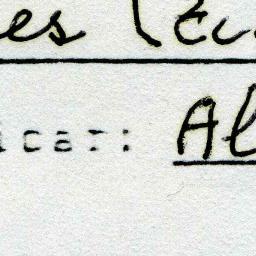 es
icar: Al